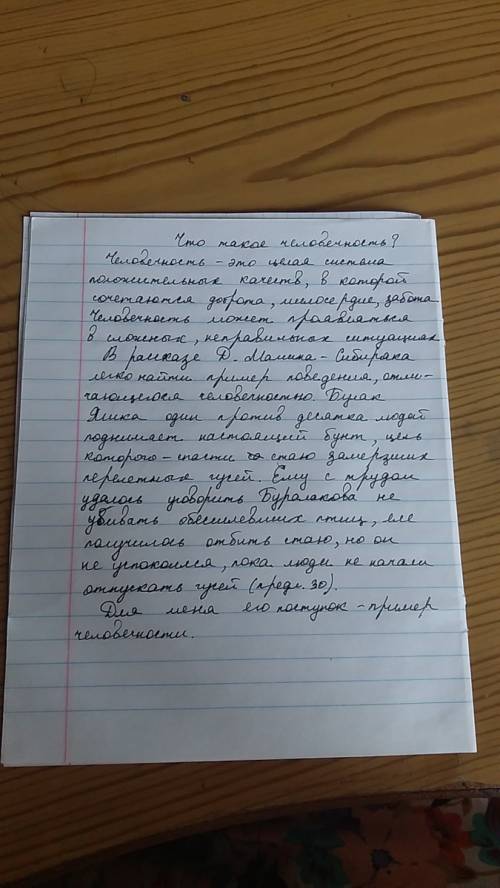 Что такое человечность?
Человечность - это целая система
положительных качеств, в которой
сочетаются доброта, милосердие, забота.
Человечность может проявляться
в сложных, неправильных ситуациях.
В рассказе Д. Мамина-Сибиряка
легко найти пример поведения, отли-
чающегося человечностью. Бурлак
Яшка один против десятка людей
поднимает настоящий бунт, цель
которого - спасти стаю замерзших
перелетных гусей. Ему с трудом
удалось уговорить Бурлакова не
убивать обессилевших птиц, еле
получилось отбить стаю, но он
не успокоился, пока люди не начали
отпускать гусей (предл. 30).
Для меня его поступок - пример
человечности.